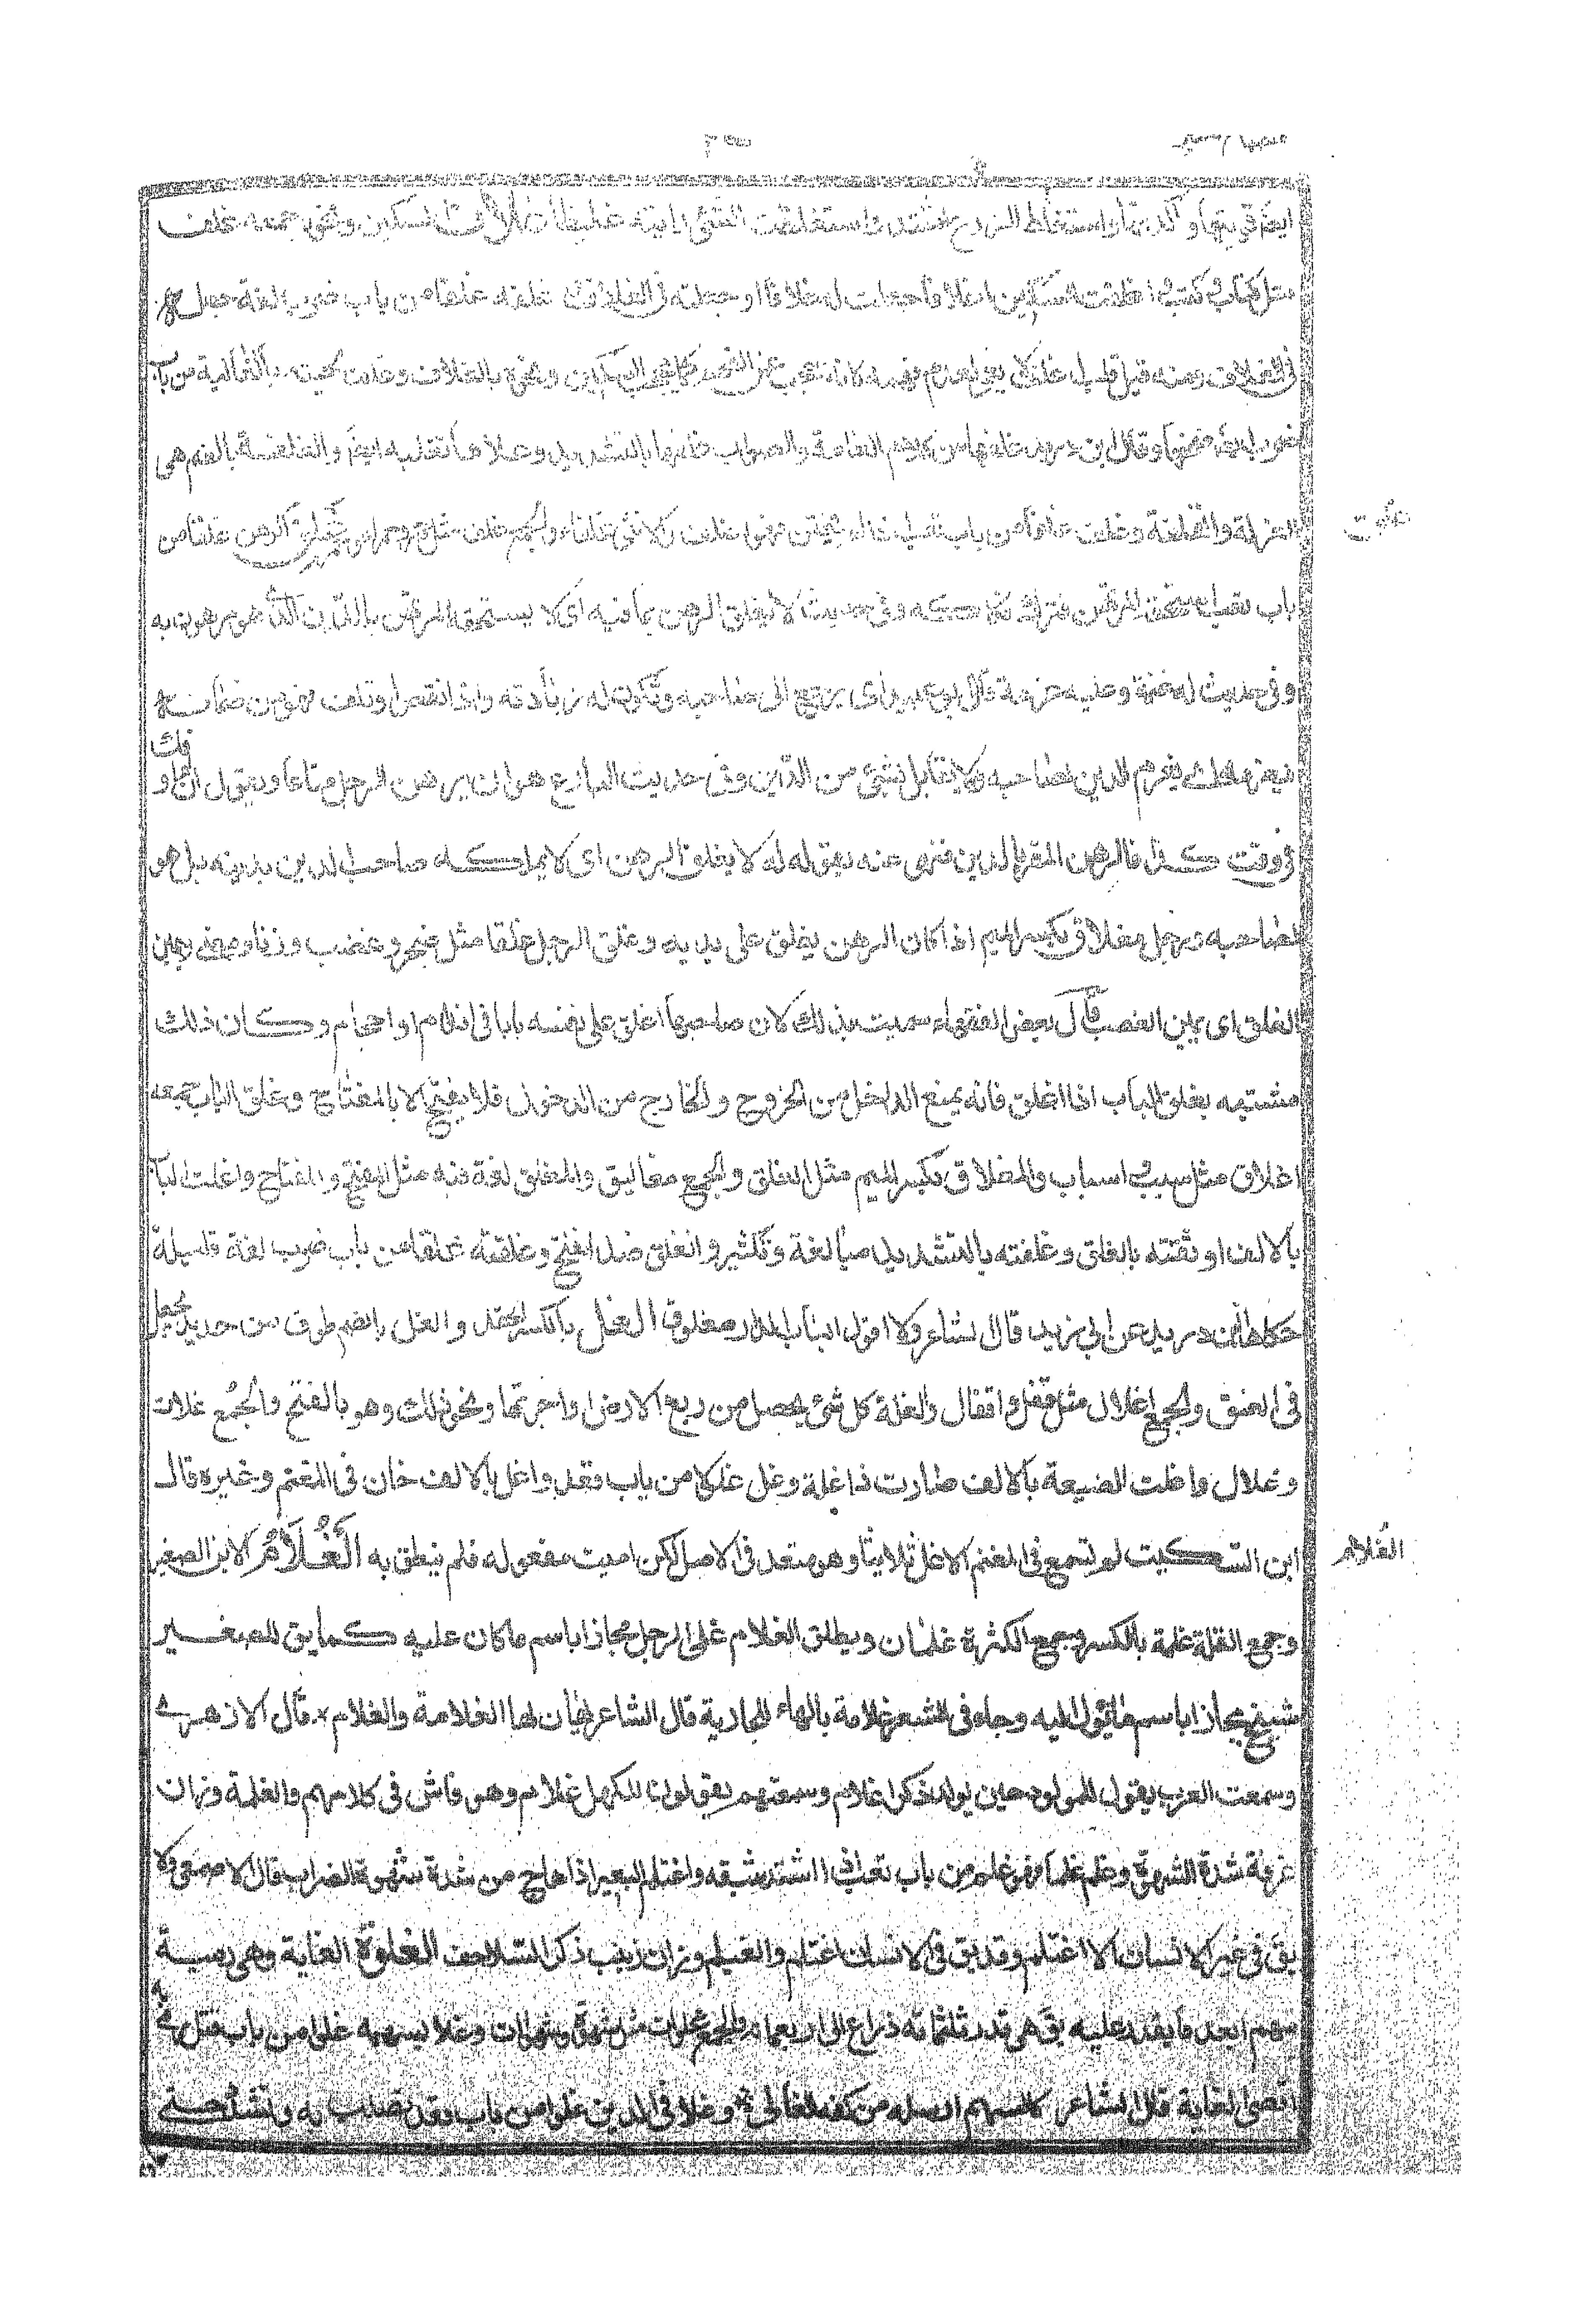 ايضا قويتها و اكدتها واستغلظ الزرع اشتد واستغلظت الشئ رأيته غليظا غلاف السكين ونحوه جمعه غلف
مثل كتاب وكتب و اغلفت السكين اغلافا جعلت له غلافا او جعلته فى الغلاف غلفته غلفا من باب ضرب لغة جعل
فى الغلاف ومنه قيل قلب اغلف لا يعى لعدم فهمه كانه حجب عن الفهم كما يحجب السكين ونحوه بالغلاف وغلف لحيته بالغالية من باب
ضرب ايضا ضمخها وقال ابن دريد غلفها من كلام العامة والصواب غلفها بالتشديد وغلاها تغلية ايضا والغلفة بالضم هى
الغرلة والقلفة وغلف غلفا من باب تعب اذا لم يختتن فهو اغلف والانثى غلفاء والجمع غلف مثل احمر وحمر غلق الرهن غلقا من
باب تعب استحقه المرتهن فترك فكاكه وفى حديث لا يغلق الرهن بما فيه اى لا يستحقه المرتهن بالدين الذى هو مرهون به
و فى حديث له غنمه وعليه غرمه قال ابو عبيد اى يرجع الى صاحبه وتكون له زيادته واذا نقص او تلف فهو من ضمانه
فيغرمه اى يغرم الدين لصاحبه ولا يقابل بشئ من الدين وفى حديث الرهن الرجل متاعا ويقول ان لم اوفك
فى وقت كذا فالرهن لك بالدين فنهى عنه بقوله لا يغلق الرهن اى لا يملكه صاحب الدين بدينه بل هو
لصاحبه ورجل مغلاق بكسر الميم اذا كان الرهن يغلق على يديه وغلق الرجل غلقا مثل ضجر وغضب وزنا ومعنى يمين
الغلق اى يمين الغضب قال بعض الفقهاء سميت بذلك لان صاحبها اغلق على نفسه بابا فى اقدام او احجام و كان ذلك
مشتبه بغلق الباب اذا اغلق فانه يمنع الداخل من الخروج والخارج من الدخول فلا يفتح الا بالمفتاح وغلق الباب جمعه
اغلاق مثل سبب و اسباب والمغلاق بكسر الميم مثل الغلق والجمع مغاليق والمغلق لغة فيه مثل المفتح والمفتاح واغلقت الباب
بالالف اوثقته بالغلق وغلقته بالتشديد مبالغة وتكثير وانغلق ضد انفتح وغلقته غلقا من باب ضرب لغة قليلة
حكاها ابن دريد عن ابى زيد قال الشاعر ولا اقول لباب الدار مغلوق الغل بالكسر الحقد والغل بالضم طوق من حديد يجعل
فى العنق والجمع اغلال مثل قفل واقفال والغلة كل شئ يحصل من ريع الارض او اجرتها ونحو ذلك وهو بالفتح والجمع غلات
وغلال واغلت الضيعة بالالف صارت ذا غلة وغل غلولا من باب قعد واغل بالالف خان فى المغنم وغيره قال
ابن السكيت لم نسمع فى المغنم الا غل ثلاثيا وهو متعد فى الاصل لكن اميت مفعوله فلم ينطق به الغُلَامُ الابن الصغير
الغلام
وجمع القلة غلمة بالكسر وجمع الكثرة غلمان ويطلق الغلام على الرجل مجازا باسم ما كان عليه كما يق للصغير
شيخ مجازا باسم ما يؤل اليه وجاء فى الشعر غلامة بالهاء للجارية قال الشاعر يهان لها الغلامة والغلام قال الازهرى
وسمعت العرب يقول للمولود حين يولد ذكرا غلام وسمعتهم يقولون للكهل غلام وهو فاش فى كلامهم والغلمة وزان
غرفة شدة الشهوة وغلم غلما فهو غلم من باب تعب اذا اشتد شبقه واغتلم البعير اذا هاج من شدة شهوة الضراب قال الاصمعى ولا
يق فى غير الانسان الا اغتلم وقد يق فى الانسان اغتلم والغيلم وزان زينب ذكر السلاحف الغلوة الغاية وهى رمية
سهم ابعد ما يقدر عليه يق هى قدر ثلثمائة ذراع الى اربعمائة والجمع غلوات مثل شهوة وشهوات وغلا بسهمه غلوا من باب قتل رمى به
اقصى الغاية قال الشاعر كالسهم ارسله من كفه الغالى وغلا فى الدين غلوا من باب قعد تصلب به وتشدد حتى